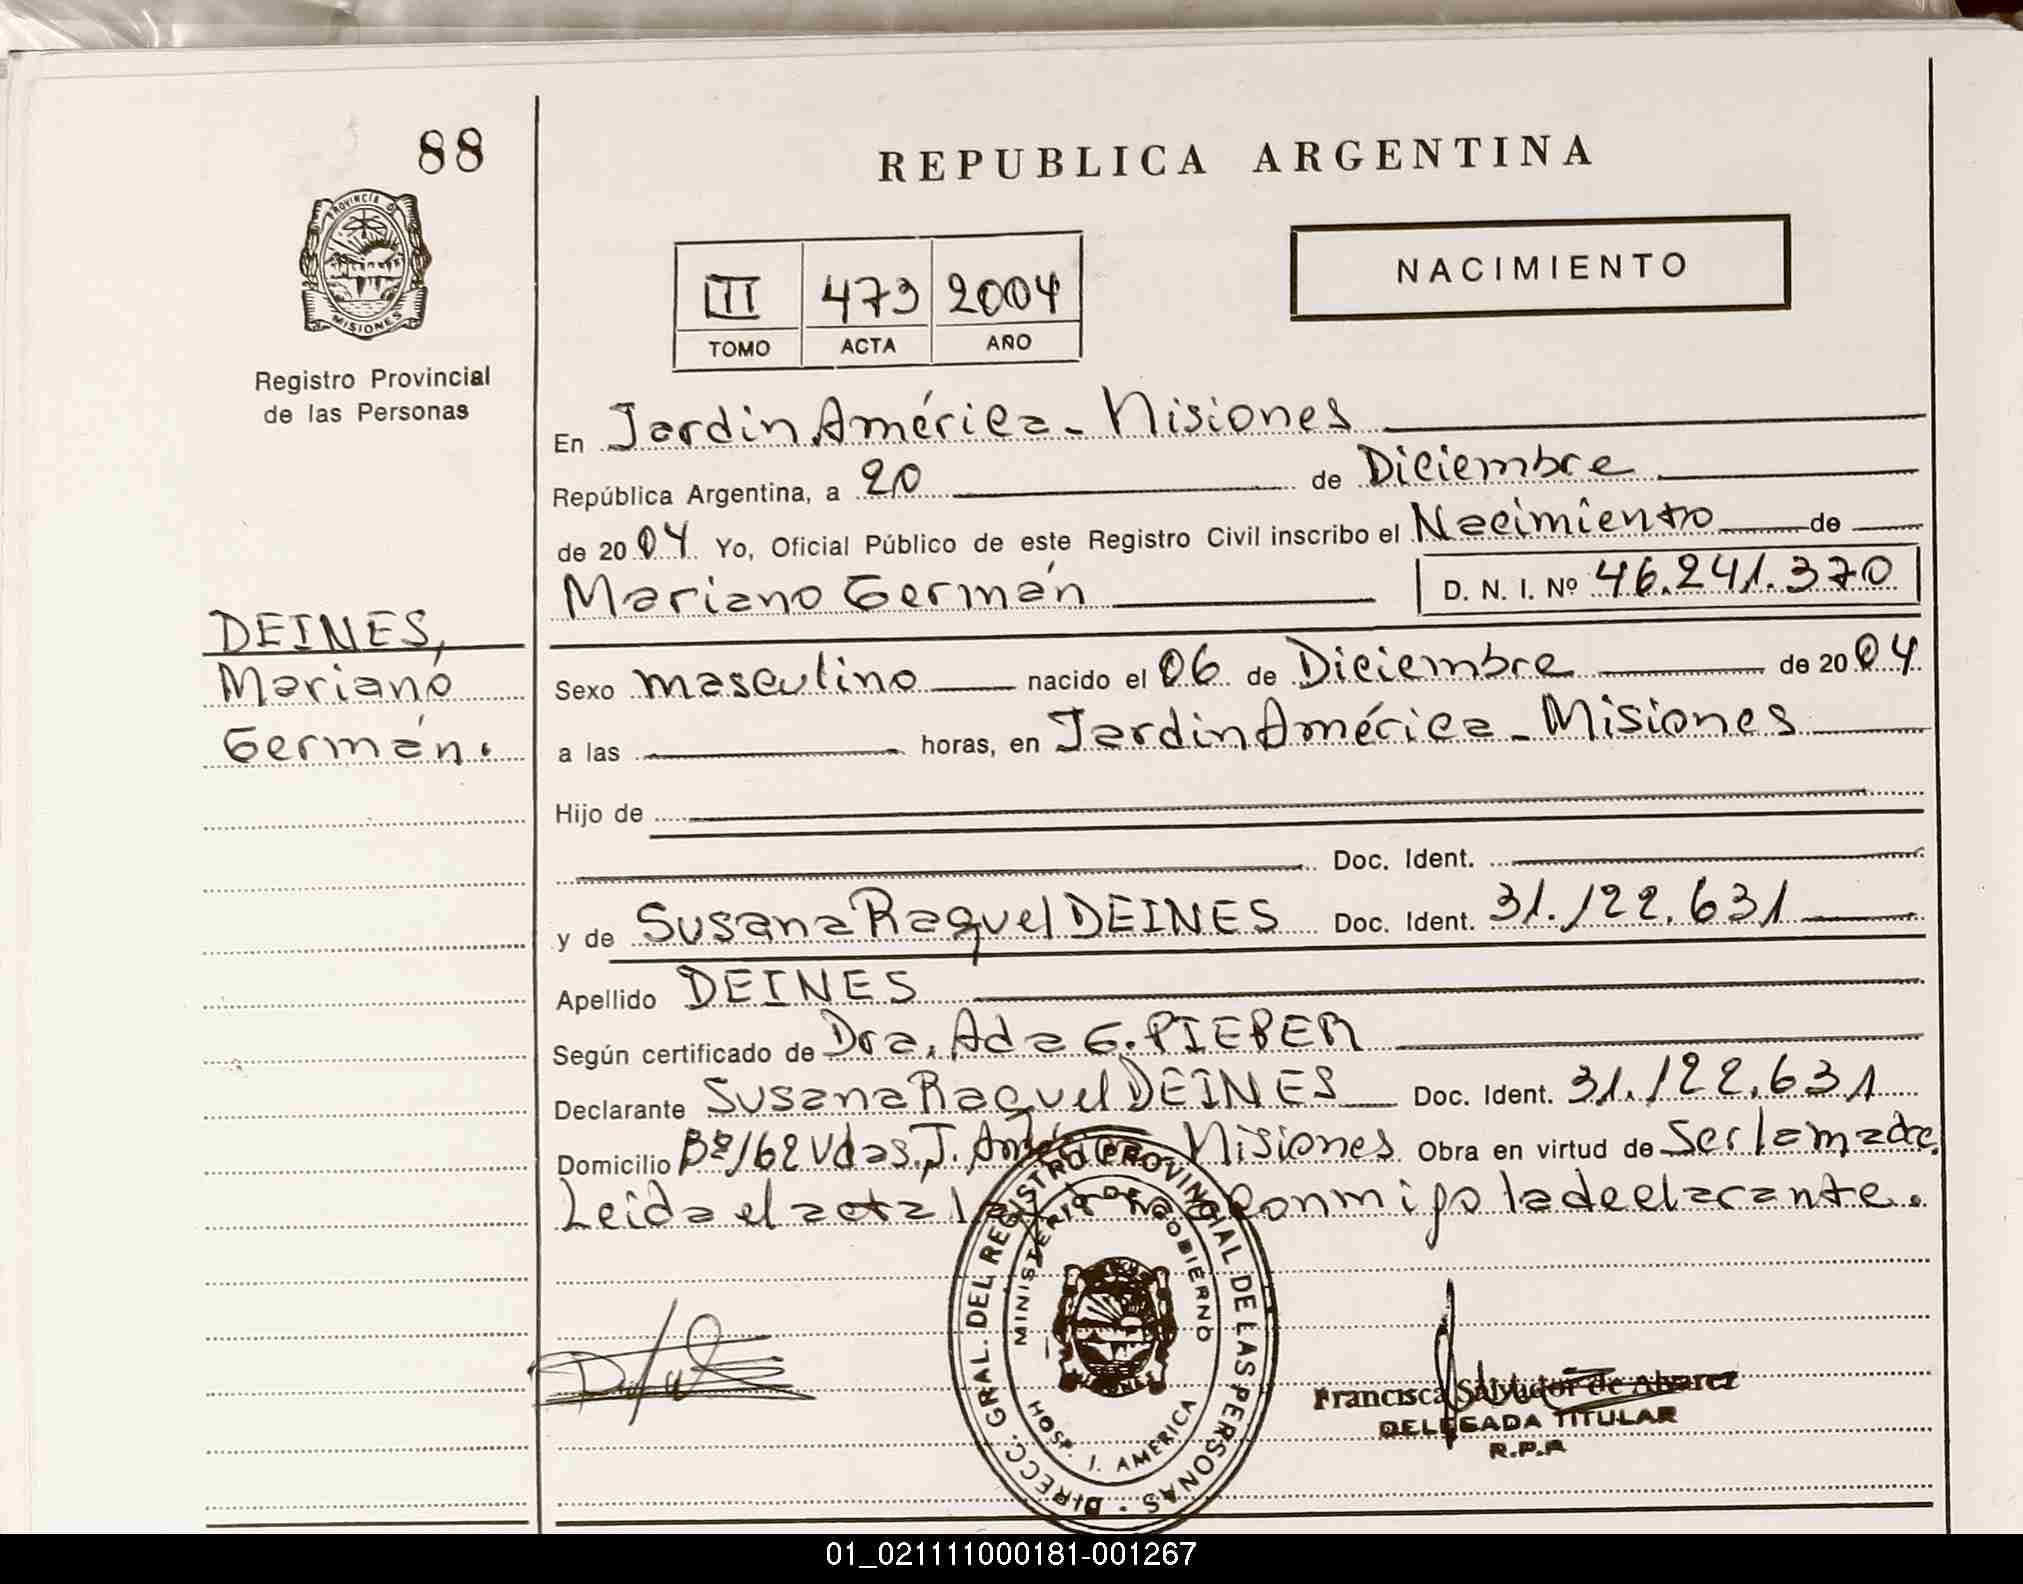 88
REPUBLICA ARGENTINA
PROVINCIA DE
MISIONES
NACIMIENTO
III 473 2004
TOMO ACTA AÑO
Registro Provincial
de las Personas
En Jardin América - Misiones
República Argentina, a 20 de Diciembre
de 2004 Yo, Oficial Público de este Registro Civil inscribo el Nacimiento de
Mariano Germán D. N. I. Nº 46.241.370
DEINES,
Mariano
Germán.
Sexo masculino nacido el 06 de Diciembre de 2004
a las horas, en Jardin América - Misiones
Hijo de
Doc. Ident.
y de Susana Raquel DEINES Doc. Ident. 31.122.631
Apellido DEINES
Según certificado de Dra. Ada G. PIEBER
Declarante Susana Raquel DEINES Doc. Ident. 31.122.631
Domicilio Bº 162 Vdas. J. América Misiones Obra en virtud de Ser la madre.
Leida el acta la conmigo la declarante.
DIRECC. GRAL. DEL REGISTRO PROVINCIAL DE LAS PERSONAS
MINISTERIO DE GOBIERNO
MISIONES
HOSP. J. AMERICA
Francisca Salvador de Alvarez
DELEGADA TITULAR
R.P.P.
01_021111000181-001267